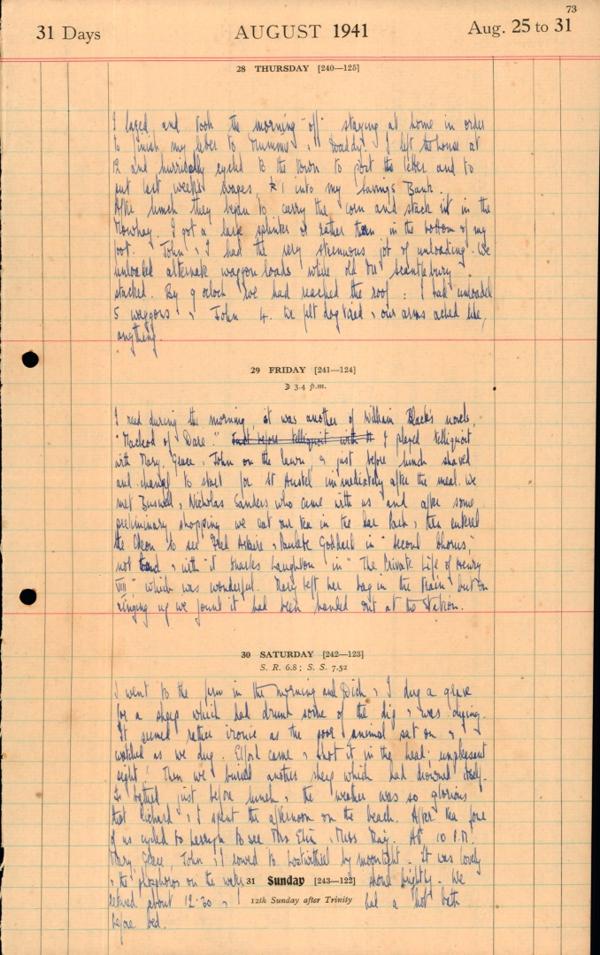 73
31 Days AUGUST 1941 Aug. 25 to 31
28 THURSDAY [240—125]
I lazed and took the morning "off" staying at home in order
to finish my letter to Mummie & Daddy. I left the house at
12 and hurriedly cycled to the town to post the letter and to
put last weeks wages, £1 into my Savings Bank.
After lunch they began to carry the corn and stack it in the
Mowhay. I got a large splinter of rather than in the bottom of my
foot. John & I had the very strenuous job of unloading. We
unloaded alternate waggon loads while old Mr Scantlebury
stacked. By 9 oclock we had reached the roof: I had unloaded
5 waggons & John 4. We felt dog tired & our arms ached like
anything.
29 FRIDAY [241—124]
☽ 3.4 p.m.
I read during the morning it was another of William Black's novels
"Macleod of Dare." I played
with Mary, Grace & John on the lawn & just before lunch shaved
and changed to start for St Austell immediately after the meal. We
met & Nicholas Sanders who came with us and after some
preliminary shopping we eat our tea in the Car Park, then entered
the Odeon to see Fred Astaire & Paulette Goddard in "Second Chorus,"
not & with it Charles Laughton in "The Private Life of Henry
VIII" which was wonderful. Mary left her bag in the train but on
ringing up we found it had been handed out at the Station.
30 SATURDAY [242—123]
S. R. 6.8; S. S. 7.52
I went to the farm in the morning and Dick & I dug a grave
for a sheep which had drunk some of the dip & was dying.
It seemed rather ironic as the poor animal sat on &
watched as we dug. came & shot it in the head: unpleasant
sight! Then we buried another sheep which had drowned itself.
I bathed just before lunch & the weather was so glorious
that Richard & I spent the afternoon on the beach. After tea four
of us cycled to to see Mrs & Miss May. At 10 P.M.
Mary, Grace, John & I rowed to Lostwithiel by moonlight. It was lovely
& the phosphorus on the water shone brightly. We
31 Sunday [243—122]
retired about 12.30 & I had a hot bath
12th Sunday after Trinity
before bed.